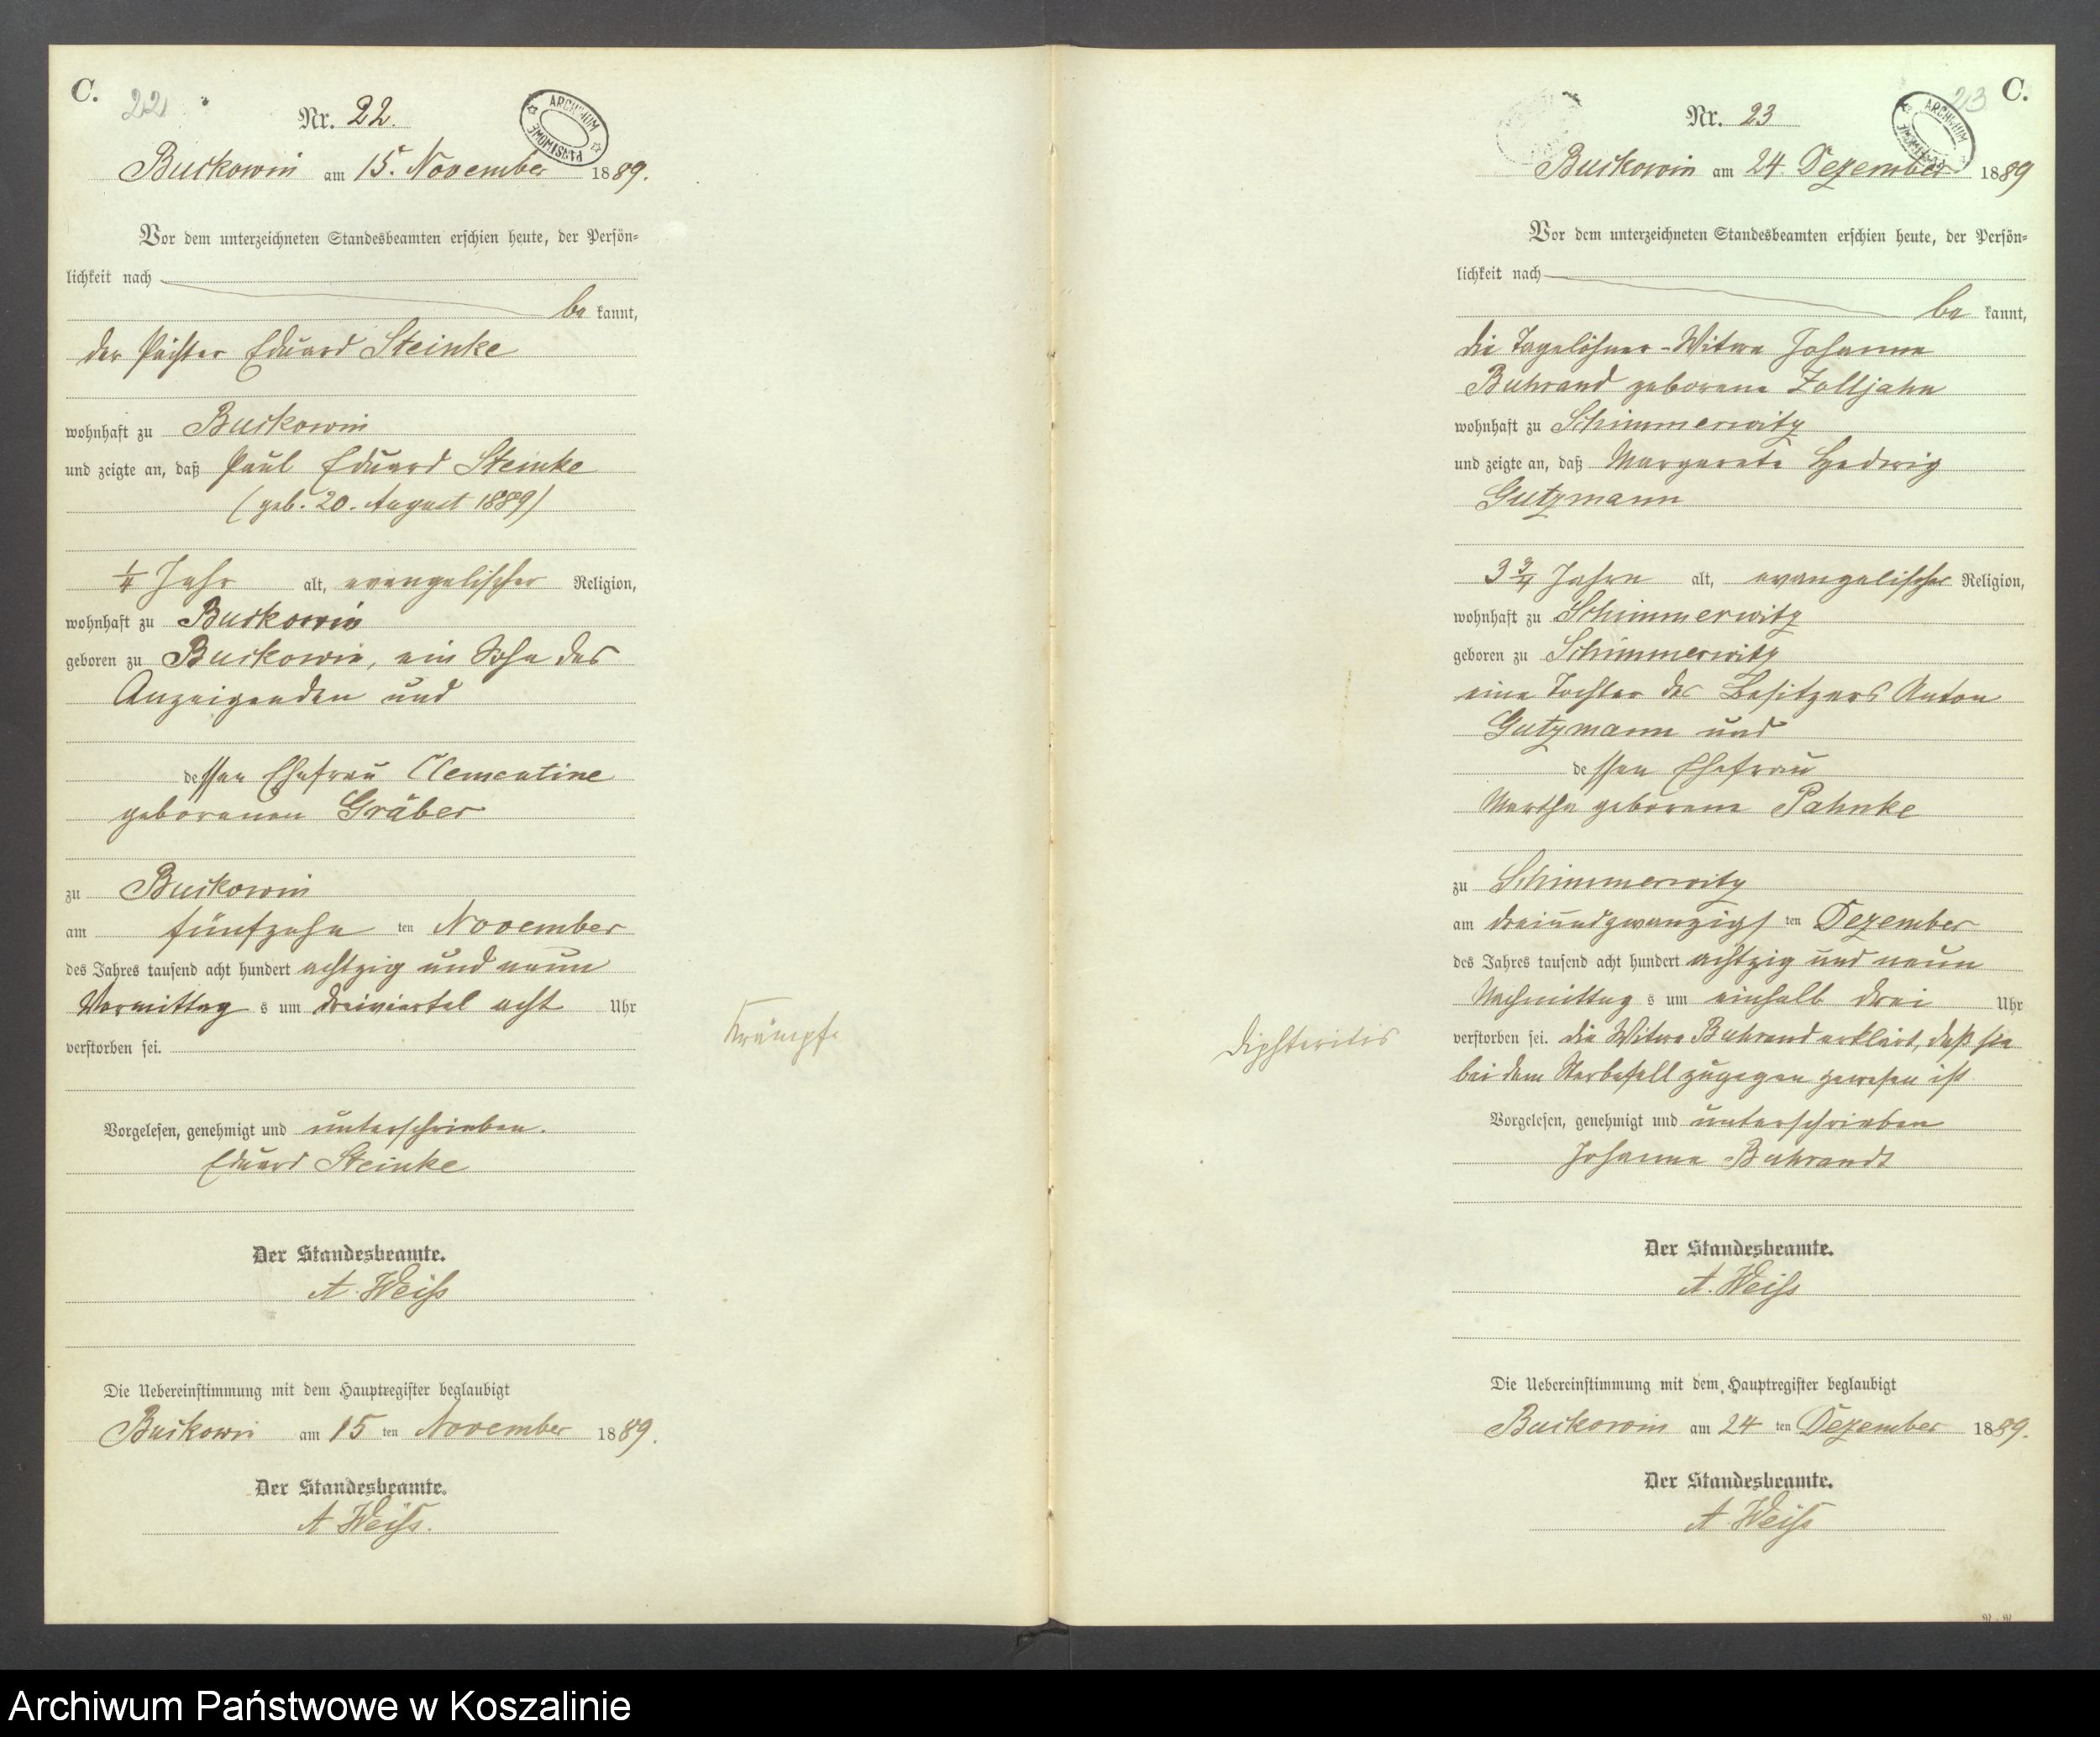 C.
22
Nr. 22.
ARCHIWUM PAŃSTWOWE
Buckowin am 15. November 1889.
Vor dem unterzeichneten Standesbeamten erschien heute, der Persön-
lichkeit nach
be kannt,
der Pächter Eduard Steinke
wohnhaft zu Buckowin
und zeigte an, daß Paul Eduard Steinke
(geb. 20. August 1889)
1/4 Jahr alt, evangelischer Religion,
wohnhaft zu Buckowin
geboren zu Buckowin, ein Sohn des
Anzeigenden und
dessen Ehefrau Clementine
geborenen Gräber
zu Buckowin
am fünfzehn ten November
des Jahres tausend acht hundert achtzig und neun
Vormittag s um dreiviertel acht Uhr
verstorben sei.
Krämpfe
Vorgelesen, genehmigt und unterschrieben.
Eduard Steinke
Der Standesbeamte.
A. Weiß
Die Uebereinstimmung mit dem Hauptregister beglaubigt
Buckowin am 15 ten November 1889.
Der Standesbeamte.
A. Weiß.
C.
23
Nr. 23
ARCHIWUM PAŃSTWOWE
Buckowin am 24. Dezember 1889
Vor dem unterzeichneten Standesbeamten erschien heute, der Persön-
lichkeit nach
be kannt,
die Tagelöhner-Witwe Johanna
Buhrand geborene Zolljahn
wohnhaft zu Schimmerwitz
und zeigte an, daß Margarete Hedwig
Gutzmann
3 3/4 Jahre alt, evangelischer Religion,
wohnhaft zu Schimmerwitz
geboren zu Schimmerwitz
eine Tochter des Besitzers Anton
Gutzmann und
dessen Ehefrau
Martha geborene Pahnke
zu Schimmerwitz
am dreiundzwanzigs ten Dezember
des Jahres tausend acht hundert achtzig und neun
Nachmittag s um einhalb drei Uhr
verstorben sei. die Witwe Buhrand erklärt, daß sie
bei dem Sterbefall zugegen gewesen ist
Diphteritis
Vorgelesen, genehmigt und unterschrieben
Johanna Buhrandt
Der Standesbeamte.
A. Weiß
Die Uebereinstimmung mit dem Hauptregister beglaubigt
Buckowin am 24 ten Dezember 1889.
Der Standesbeamte.
A. Weiß
Archiwum Państwowe w Koszalinie